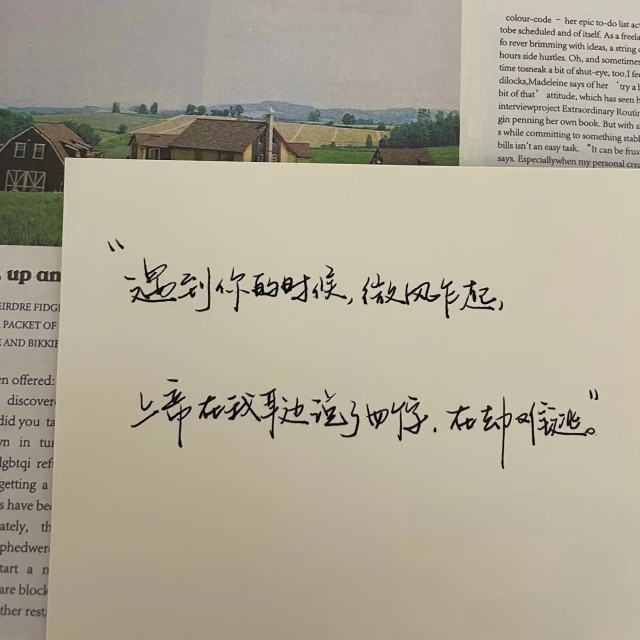 colour-code – her epic to-do list ac
tobe scheduled and of itself. As a freela
fo rever brimming with ideas, a string o
hours side hustles. Oh, and sometimes
time tosneak a bit of shut-eye, too.I fee
dilocks,Madeleine says of her 'try a b
bit of that' attitude, which has seen h
interviewproject Extraordinary Routin
gin penning her own book. But with s
s while committing to something stabl
bills isn't an easy task. "It can be frus
says. Especiallywhen my personal crea
"遇到你的时候,微风乍起,
上帝在我耳边说了四个字,在劫难逃。"
, up an
EIRDRE FIDG
PACKET OF
E AND BIKKIE
en offered:
discover
did you ta
wn in tur
lgbtqi ref
getting a
s have be
ately, th
phedwer
tart a n
are block
ther rest